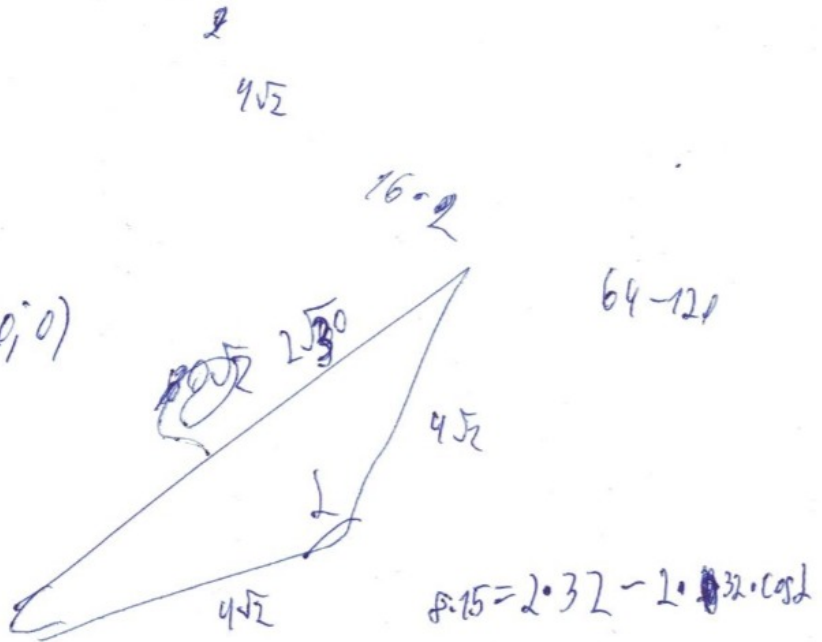 2
4√2
16·2
64-120
0;0)
2√30
4√2
α
4√2
8·15=2·32-2·32·cosα